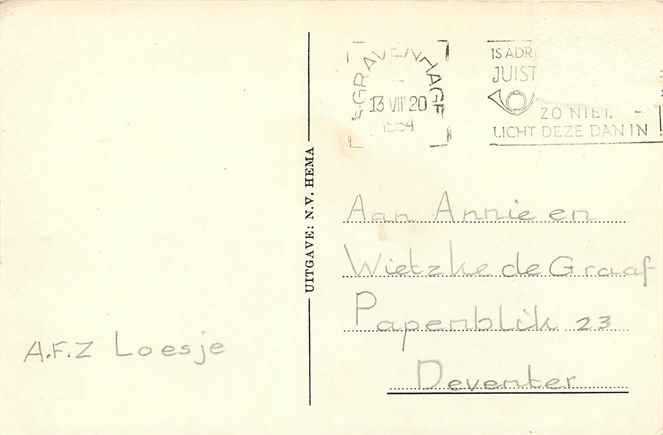 'S-GRAVENHAGE
13 VII 20
IS ADR
JUIST
ZO NIET,
LICHT DEZE DAN IN
UITGAVE: N.V. HEMA
Aan Annie en
Wietzke de Graaf
Papenblik 23
Deventer
A.F.Z Loesje